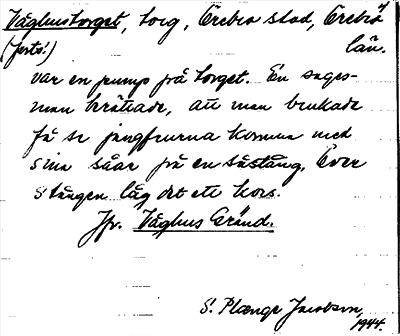 Våghustorget, torg, Örebro stad, Örebro
(forts.) län.
var en pump på torget. En sages-
man berättade, att man brukade
få se jungfruna komma med
sina såar på en såstång. Över
stången låg det ett kors.
Jfr. Våghus Gränd.
S. Plænge Jacobson,
1944.